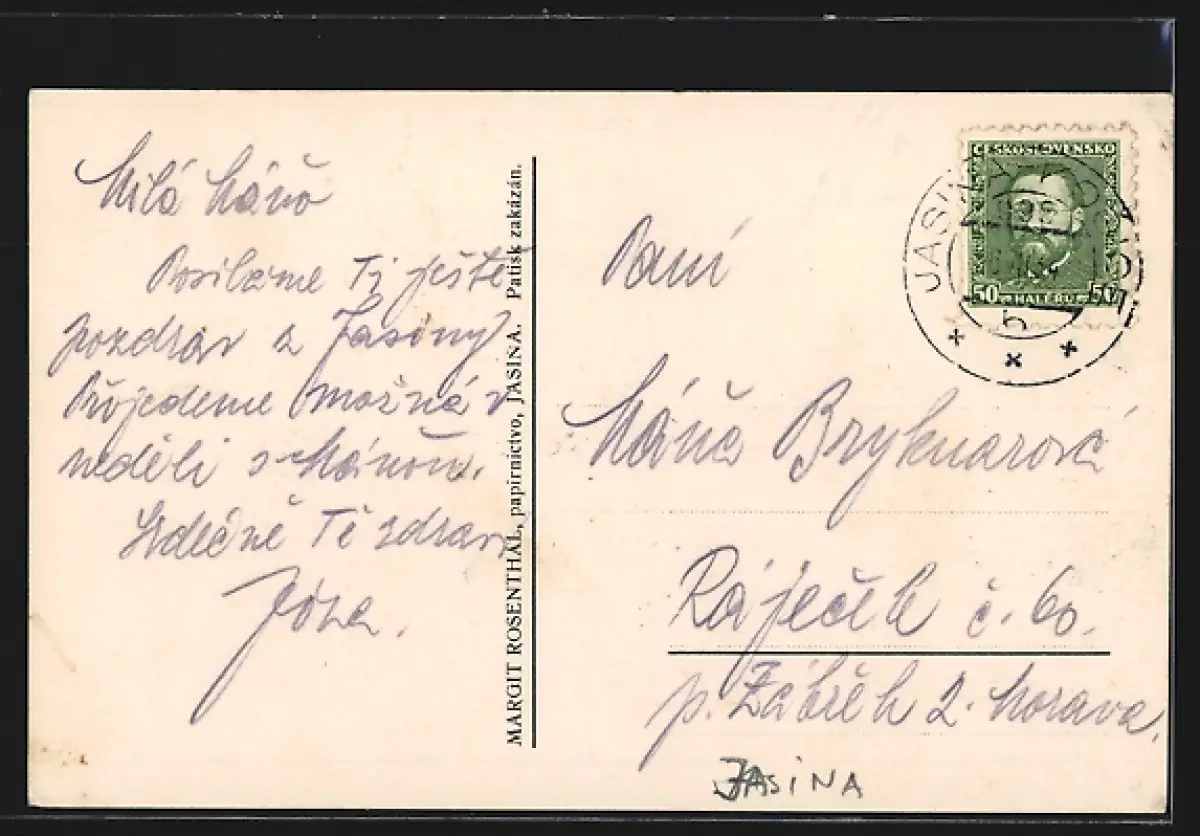 Milá Máňo
Posíláme Ti ještě
pozdrav z Jasiny
Přijedeme možná v
neděli s Máňou.
Srdečně Tě zdraví
Józa.
MARGIT ROSENTHAL, papírnictvo, JASINA. Patisk zakázán.
ČESKOSLOVENSKO
50 HALÉŘŮ 50
JASIŇA
Paní
Máňa Bryknarová
Ráječek č. 60.
p. Zábřeh 2. Morava.
JASINA